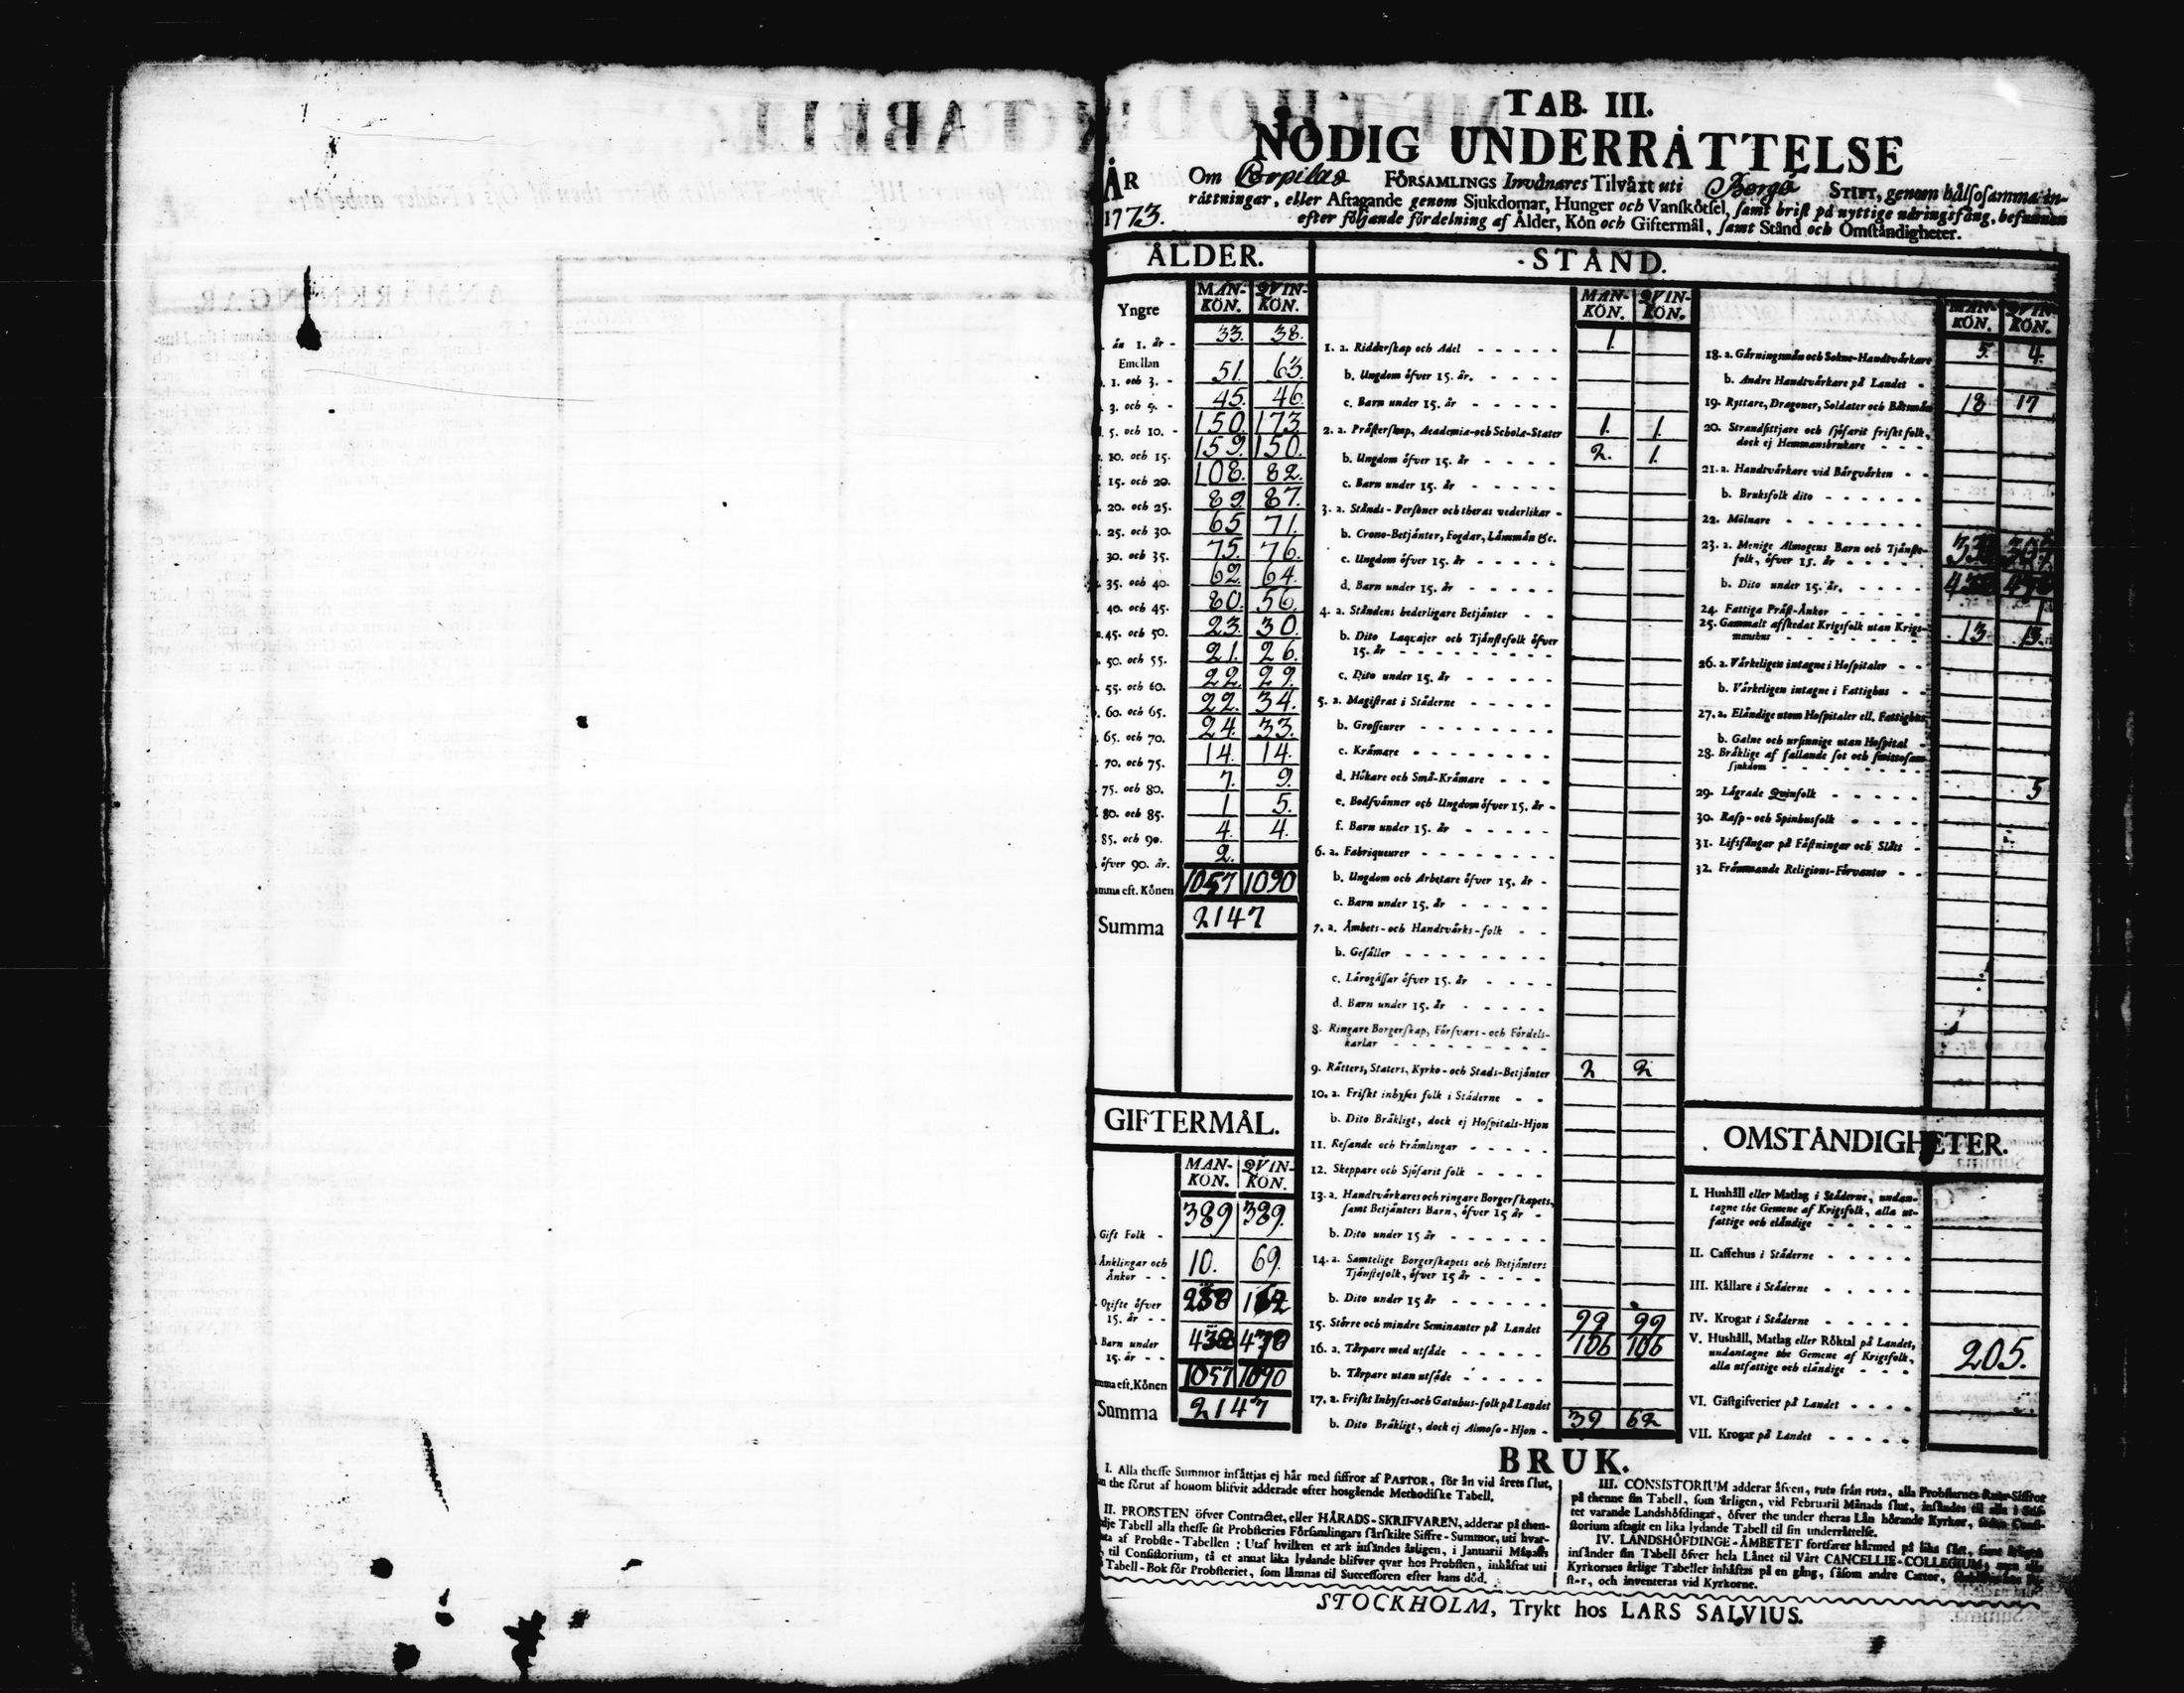 TAB. III.
NÖDIG UNDERRÅTTELSE
ÅR 1773.
Om Corpilas FÖRSAMLINGS Invånares Tilvåxt uti Borgå STIFT, genom hålsosamma in-
råttningar, eller Aftagande genom Sjukdomar, Hunger och Vanskötsel, samt brist på nyttige näringsfång, befunnen
efter följande fördelning af Ålder, Kön och Giftermål, samt Stånd och Omståndigheter.
ÅLDER.
Yngre MAN-KÖN. QVIN-KÖN.
än 1. år - 33. 38.
Emellan
1. och 3. - 51. 63.
3. och 5. - 45. 46.
5. och 10. - 150. 173.
10. och 15. 159. 150.
15. och 20. 108. 82.
20. och 25. 89. 87.
25. och 30. 65. 71.
30. och 35. 75. 76.
35. och 40. 62. 64.
40. och 45. 80. 56.
45. och 50. 23. 30.
50. och 55. 21. 26.
55. och 60. 22. 29.
60. och 65. 22. 34.
65. och 70. 24. 33.
70. och 75. 14. 14.
75. och 80. 7. 9.
80. och 85. 1 5.
85. och 90. 4. 4.
öfver 90. år. 2.
mma eft. Könen 1057 1090
Summa 2147
GIFTERMÅL.
MAN-KÖN. QVIN-KÖN.
Gift Folk - 389 389.
Änklingar och Änkor - - 10. 69.
Ogifte öfver 15. år - -
Barn under 15. år - -
mma eft. Könen 1057 1090
Summa 2147
STÅND.
MAN-KÖN. QVIN-KÖN.
1. a. Ridderskap och Adel - - - - - 1.
b. Ungdom öfver 15. år. - - - - -
c. Barn under 15. år - - - - -
2. a. Pråsterskap, Academiæ-och Scholæ-Stater 1. 1.
b. Ungdom öfver 15. år - - - - 2. 1.
c. Barn under 15. år - - - - -
3. a. Stånds-Personer och theras vederlikar -
b. Crono-Betjänter, Fogdar, Länsmän &c.
c. Ungdom öfver 15. år - - - - -
d. Barn under 15. år - - - - -
4. a. Ståndens hederligare Betjänter - -
b. Dito Laqvajer och Tjänstefolk öfver
15. år - - - - - - - - -
c. Dito under 15. år - - - - -
5. a. Magistrat i Städerne - - - - -
b. Grosseurer - - - - - - -
c. Krämare - - - - - - - -
d. Hökare och Små-Krämare - - -
e. Bodsvänner och Ungdom öfver 15. år -
f. Barn under 15. år - - - - -
6. a. Fabriqueurer - - - - - - - -
b. Ungdom och Arbetare öfver 15. år -
c. Barn under 15. år - - - - -
7. a. Ämbets-och Handtvärks-folk - -
b. Gesäller - - - - - - - -
c. Lärogåssar öfver 15. år - - - -
d. Barn under 15. år - - - - -
8. Ringare Borgerskap, Försvars-och Fördels-
karlar - - - - - - - - -
9. Råtters, Staters, Kyrko-och Stads-Betjänter 2 2
10. a. Friskt inhyses folk i Städerne - -
b. Dito Bråkligt, dock ej Hospitals-Hjon
11. Resande och Främlingar - - - -
12. Skeppare och Sjöfarit folk - - - -
13. a. Handtvärkares och ringare Borgerskapets,
samt Betjänters Barn, öfver 15 år -
b. Dito under 15 år - - - - - -
14. a. Samtelige Borgerskapets och Betjänters
Tjänstefolk, öfver 15 år - - - -
b. Dito under 15 år - - - - - -
15. Större och mindre Seminanter på Landet 99 99
16. a. Torpare med utsäde - - - - - 106 106
b. Torpare utan utsäde - - - - -
17. a. Friskt Inhyses-och Gatuhus-folk på Landet
b. Dito Bråkligt, dock ej Almoso-Hjon - 39 62
MAN-KÖN. QVIN-KÖN.
18. a. Gärningsmän och Sokne-Handtvärkare 5. 4.
b. Andre Handtvärkare på Landet -
19. Ryttare, Dragoner, Soldater och Båtsmän 18 17
20. Strandsittjare och sjöfarit friskt folk,
dock ej Hemmansbrukare - - -
21. a. Handtvärkare vid Bärgvärken - -
b. Bruksfolk dito - - - - - -
22. Mölnare - - - - - - - -
23. a. Menige Almogens Barn och Tjänste-
folk, öfver 15. år - - - - -
b. Dito under 15. år. - - - - -
24. Fattiga Präst-Änkor - - - - - 1
25. Gammalt afskedat Krigsfolk utan Krigs-
manshus - - - - - - - 13 13.
26. a. Värkeligen intagne i Hospitaler - -
b. Värkeligen intagne i Fattighus - -
27. a. Eländige utom Hospitaler ell. Fattighus
b. Galne och ursinnige utan Hospital -
28. Bråklige af fallande sot och smittosam
sjukdom - - - - - - - -
29. Lägrade Qvinfolk - - - - - 5
30. Rasp-och Spinhusfolk - - - - -
31. Lifsfångar på Fästningar och Slått -
32. Främmande Religions-Förvanter - -
OMSTÅNDIGHETER.
I. Hushåll eller Matlag i Städerne, undan-
tagne the Gemene af Krigsfolk, alla ut-
fattige och eländige - - - - -
II. Caffehus i Städerne - - - - -
III. Källare i Städerne - - - - -
IV. Krogar i Städerne - - - - -
V. Hushåll, Matlag eller Röktal på Landet,
undantagne the Gemene af Krigsfolk,
alla utfattige och eländige - - - 205.
VI. Gästgifverier på Landet - - - -
VII. Krogar på Landet - - - - -
BRUK.
I. Alla thesse Summor insättjas ej här med siffror af PASTOR, för än vid årets slut,
the förut af honom blifvit adderade efter hosgående Methodiske Tabell.
II. PROBSTEN öfver Contractet, eller HÄRADS-SKRIFVAREN, adderar på then-
Tabell alla thesse sit Probsteries Församlingars särskilte Siffre-Summor, uti hvar-
af Probste-Tabellen: Utaf hvilken et ark insändes årligen, i Januarii Månads
til Consistorium, tå et annat lika lydande blifver qvar hos Probsten, inhäftat uti
Tabell-Bok för Probsteriet, som lämnas til Successoren efter hans död.
III. CONSISTORIUM adderar äfven, ruta från ruta, alla Probstarnes Rute-Siffror
på thenne sin Tabell, som årligen, vid Februarii Månads slut, insändes til alla i Stif-
tet varande Landshöfdingar, öfver the under theras Län hörande Kyrkor, sedan Consi-
storium aftagit en lika lydande Tabell til sin underrättelse.
IV. LANDSHÖFDINGE-ÄMBETET fortfarer härmed på lika sätt,
insänder sin Tabell öfver hela Länet til Vårt CANCELLIE-COLLEGIUM,
Kyrkornes årlige Tabeller inhäftas på en gång, såsom andre Cartor,
och inventeras vid Kyrkorne.
STOCKHOLM, Trykt hos LARS SALVIUS.